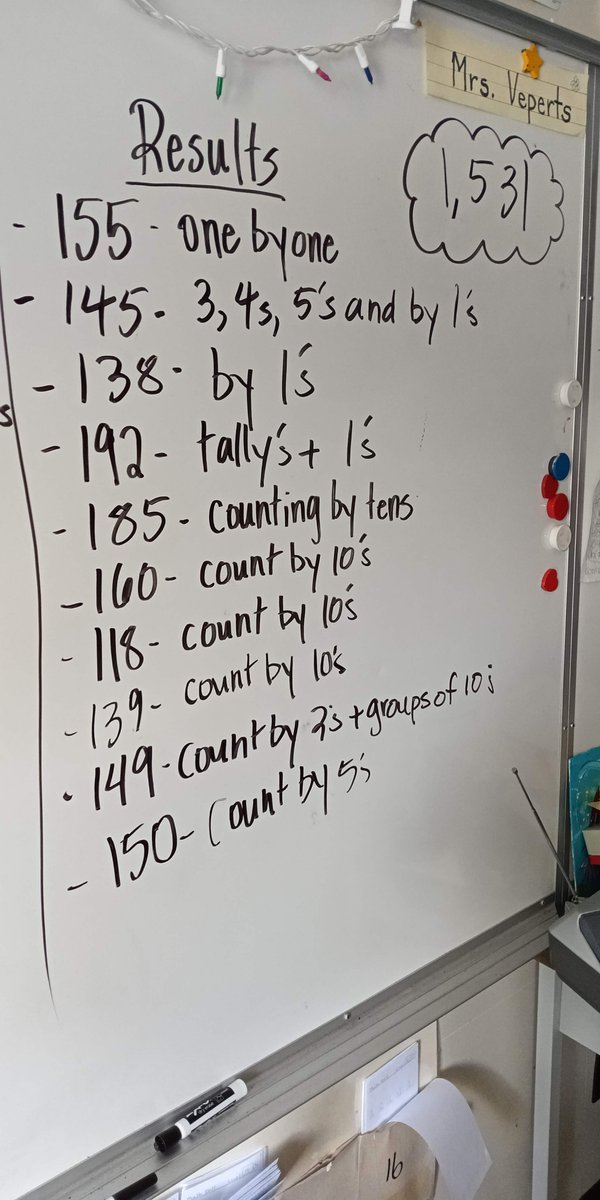 Mrs. Veperts
Results
1,531
- 155 - one by one
- 145 - 3, 4s, 5's and by 1's
- 138 - by 1's
- 192 - tally's + 1's
- 185 - counting by tens
- 160 - count by 10's
- 118 - count by 10's
- 139 - count by 10's
- 149 - count by 2's + groups of 10s
- 150 - count by 5's
s
16